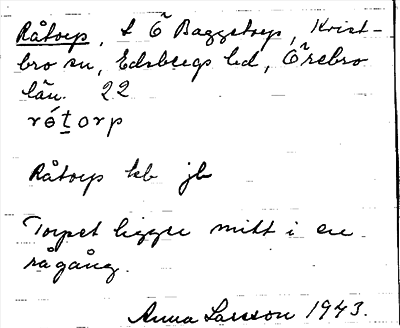 Råtorp, t Ö Baggetorp, Krist-
bro sn, Edsbergs hd, Örebro
län. 22
rótorp
Råtorp kb jb
Torpet ligger mitt i en
rågång.
Anna Larsson 1943.